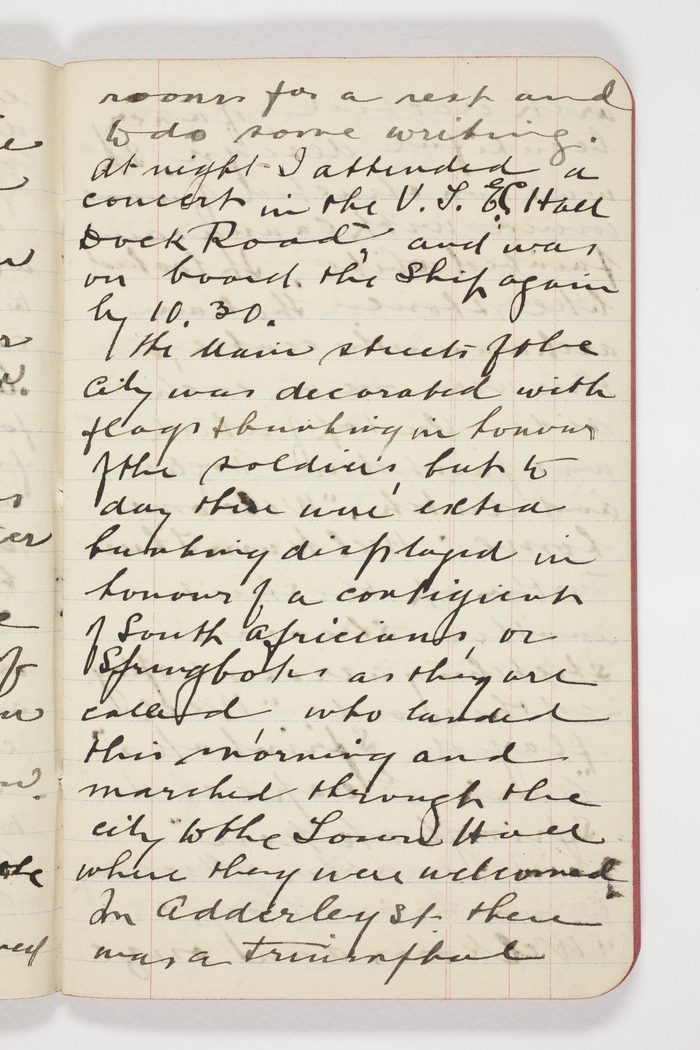 rooms for a rest and
to do some writing.
At night I attended a
concert in the V. T. E.C. Hall
Dock Road, and was
on board the Ship again
by 10.30.
The Main streets of the
City was decorated with
flags & bunting in honour
of the soldiers, but to
day there were extra
bunting displayed in
honour of a contigient
of South Africians, or
Springboks as they are
called who landed
this morning and
marched through the
city to the Town Hall
where they were welcomed.
In Adderley St there
was a triumphal